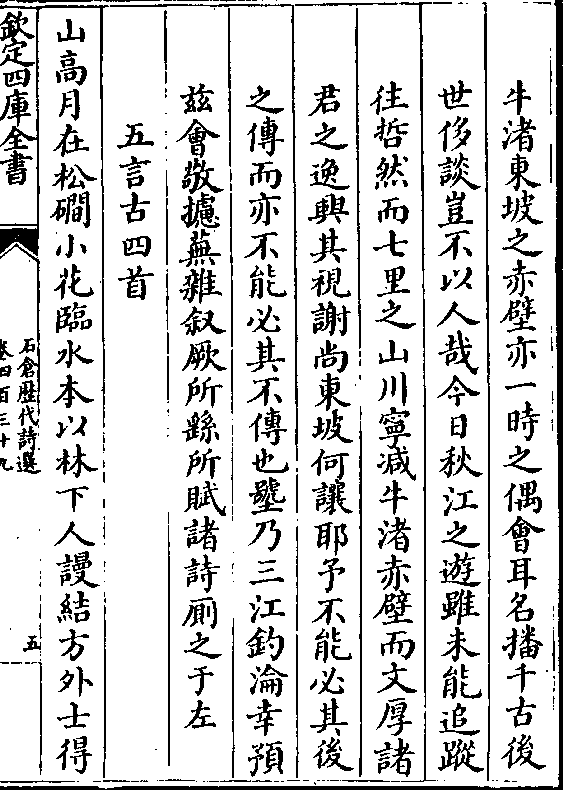 牛渚東坡之赤壁亦一時之偶會耳名播千古後
世侈談豈不以人哉今日秋江之遊雖未能追蹤
往哲然而七里之山川寧減牛渚赤壁而文厚諸
君之逸興其視謝尚東坡何讓耶予不能必其後
之傳而亦不能必其不傳也壁乃三江釣淪幸預
茲會敬攄蕪雜叙厥所繇所賦諸詩厠之于左
五言古四首
山高月在松磵小花臨水本以林下人謾結方外士得
欽定四庫全書
石倉歷代詩選
卷四百三十九
五